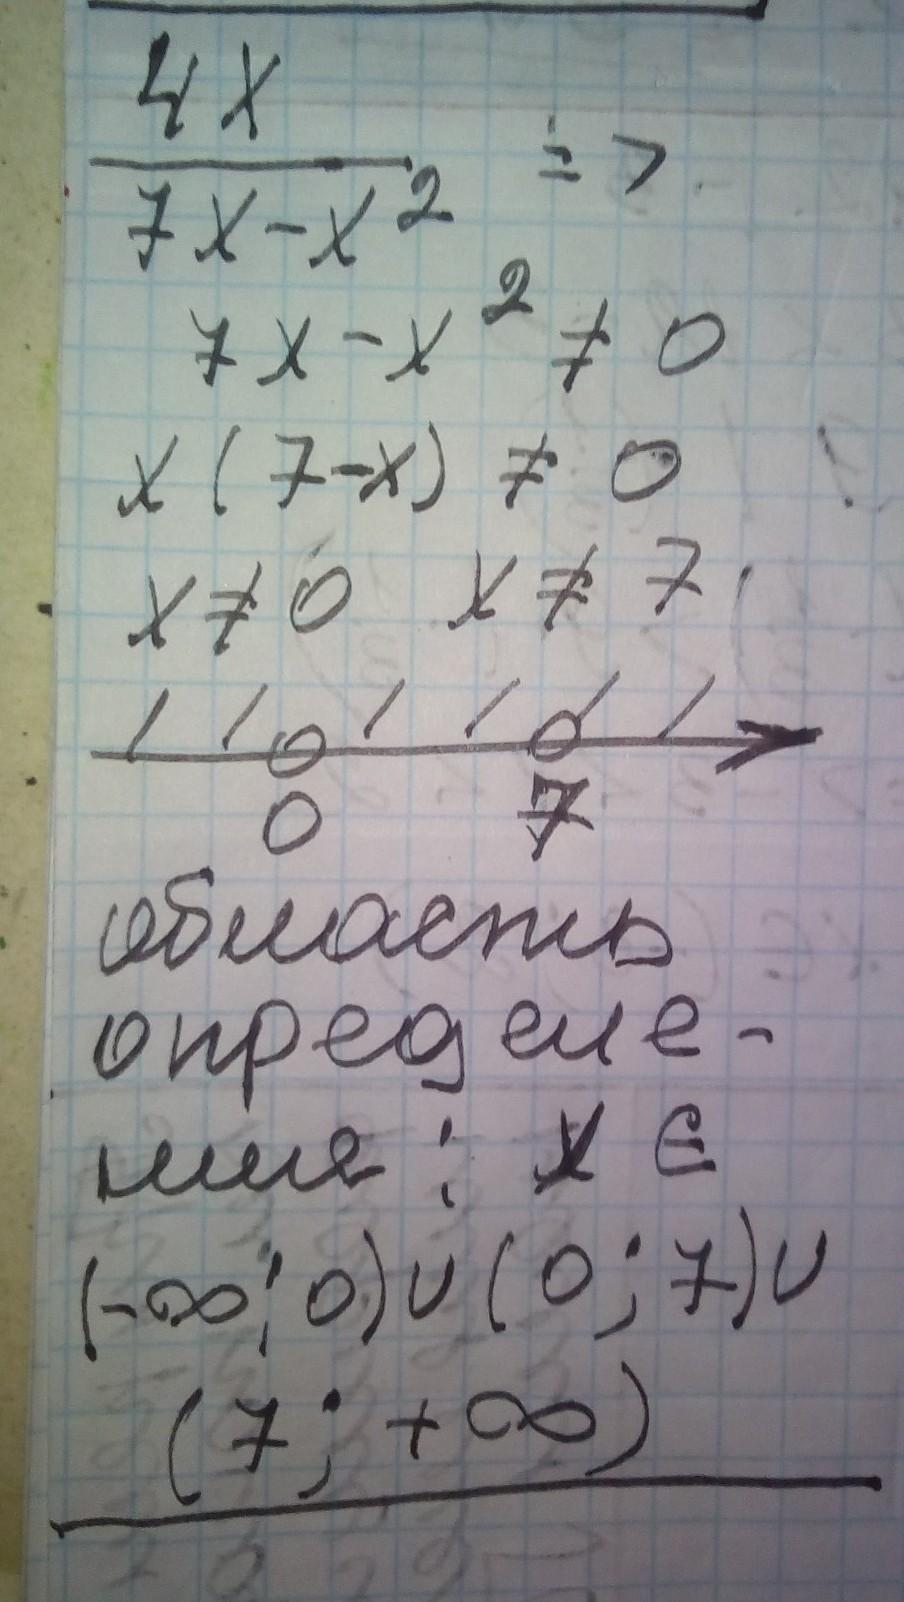 4x
7x-x² =>
7x-x² ≠ 0
x(7-x) ≠ 0
x≠0 x≠7
0 7
область
определе-
ния: x∈
(-∞; 0)∪(0; 7)∪
(7; +∞)